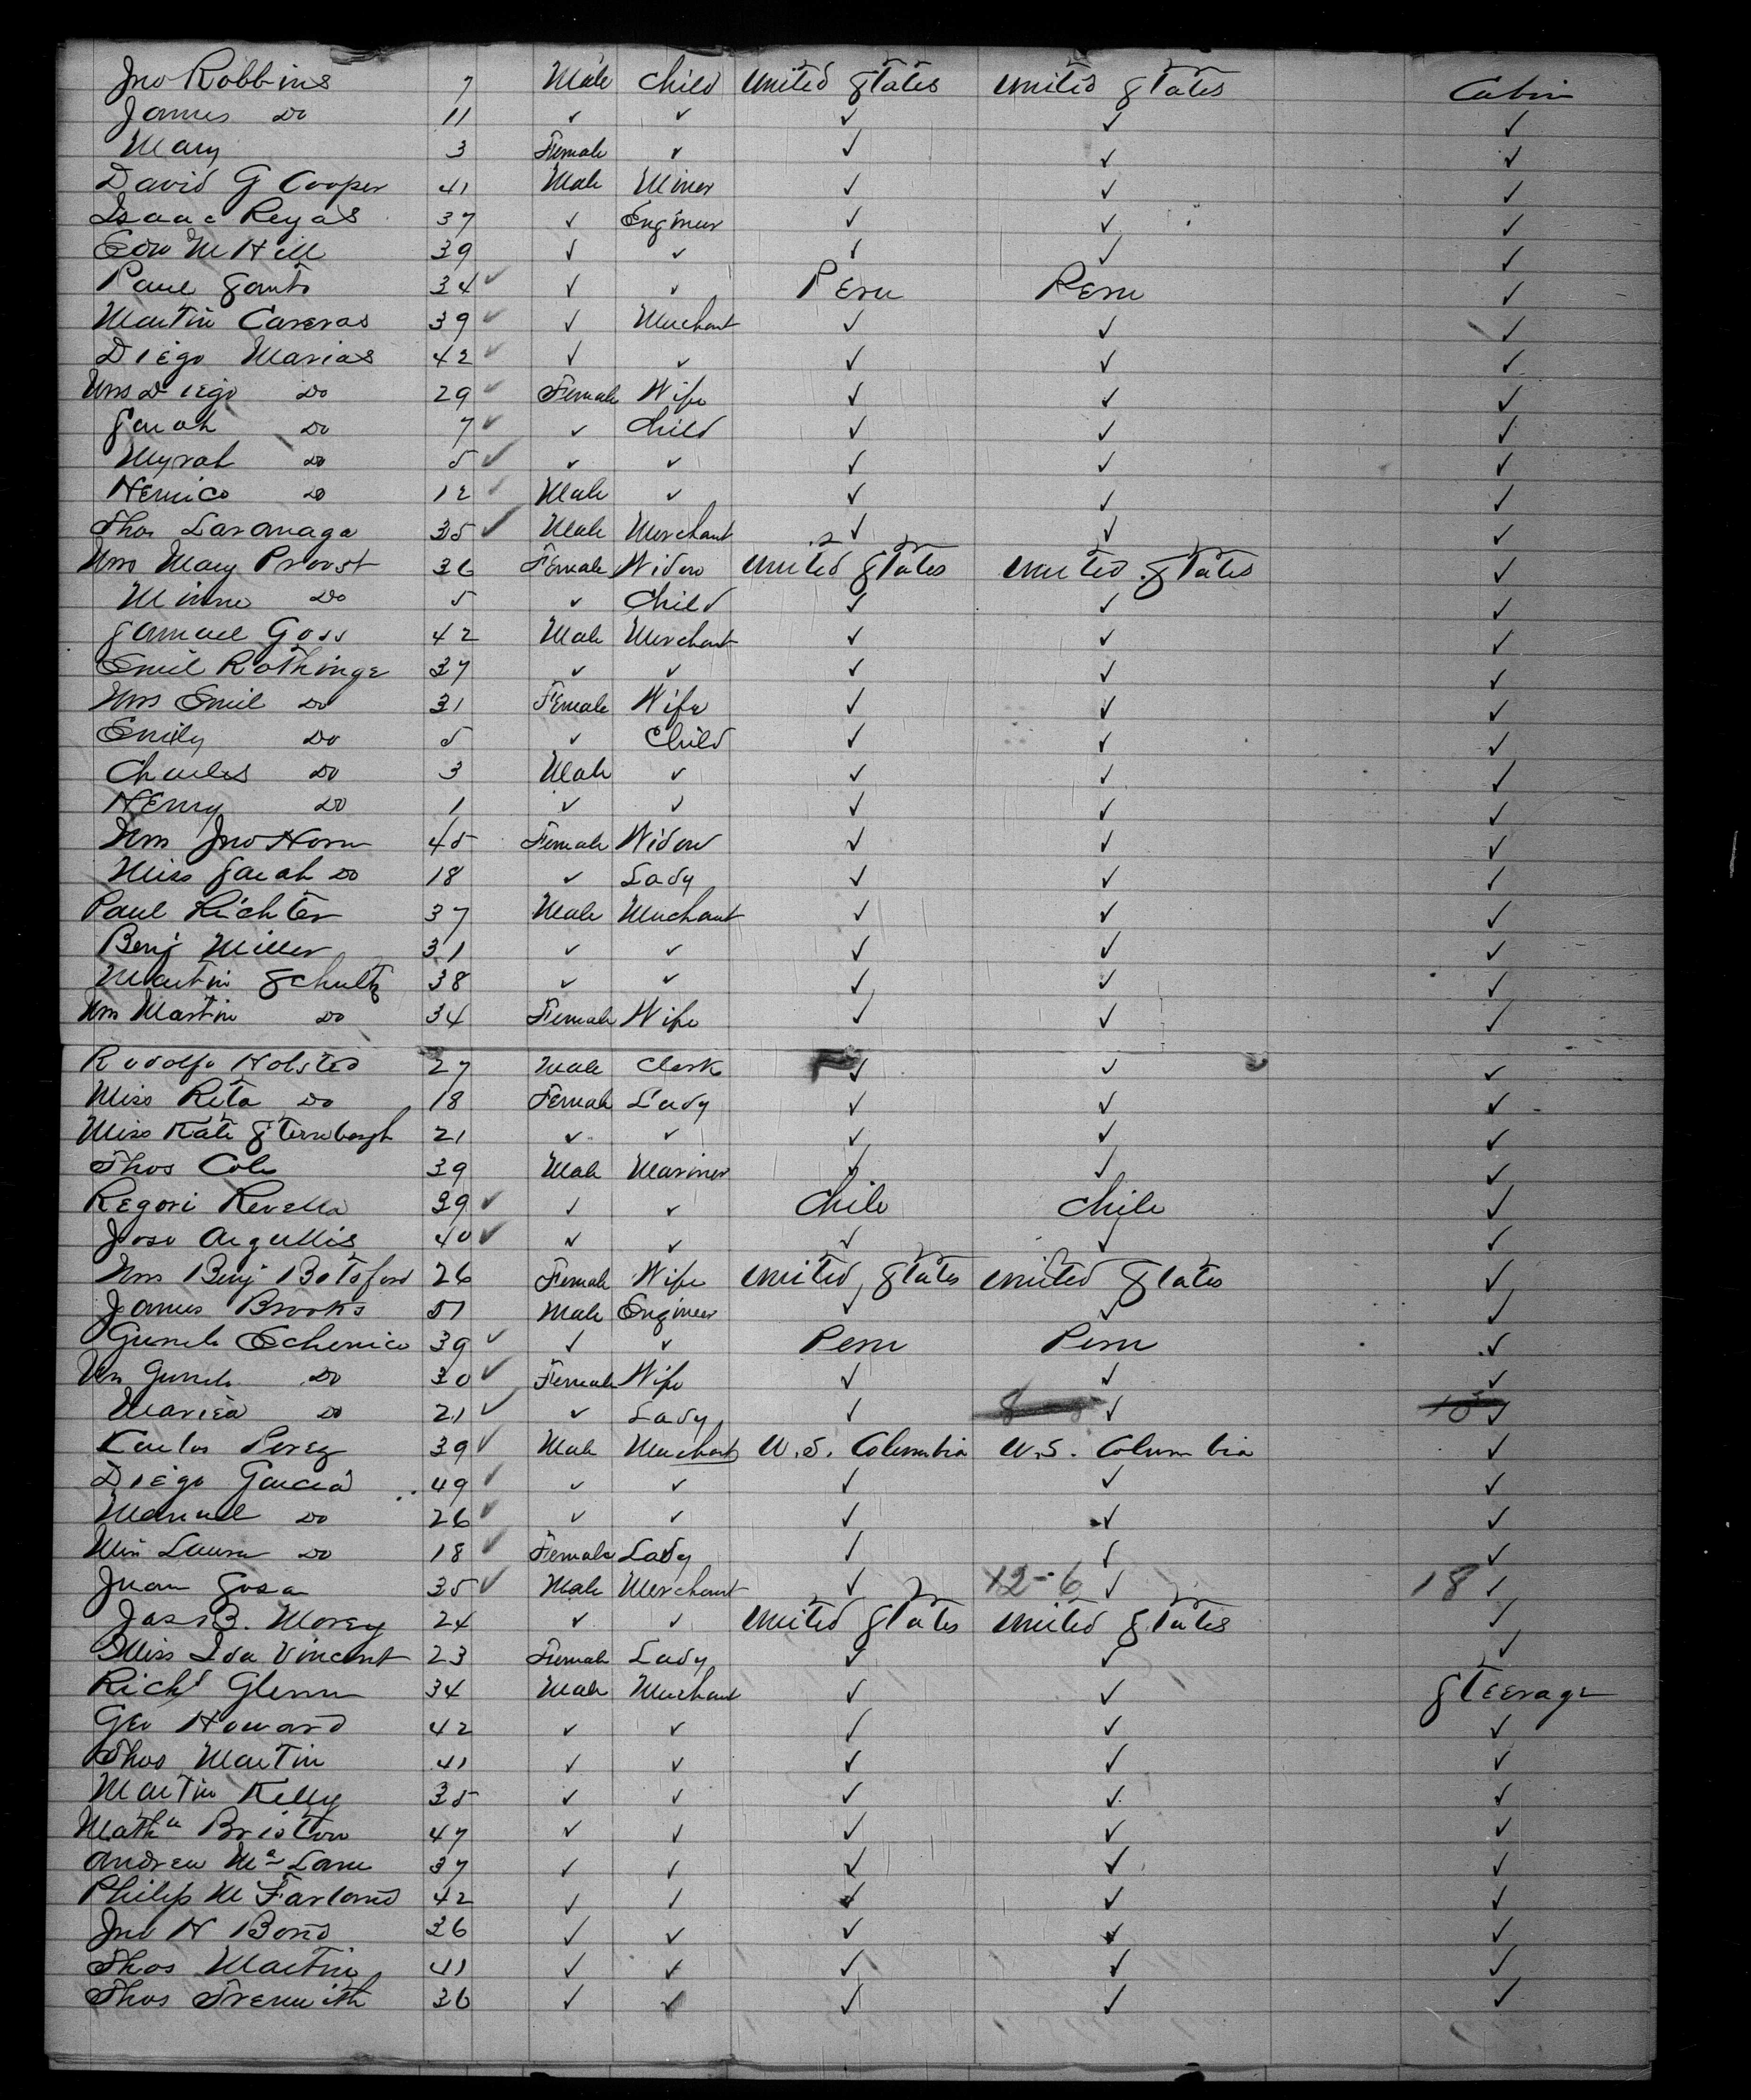 Jno Robbins 7 Male Child United States United States Cabin
James Do 11 ✓ ✓ ✓ ✓ ✓
Mary 3 Female ✓ ✓ ✓ ✓
David G Cooper 41 Male Miner ✓ ✓ ✓
Isaac Reyas 37 ✓ Engineer ✓ ✓ ✓
Edw M Hill 39 ✓ ✓ ✓ ✓ ✓
Paul Santo 34 ✓ ✓ ✓ Peru Peru ✓
Martin Careras 39 ✓ ✓ Merchant ✓ ✓ ✓
Diego Marias 42 ✓ ✓ ✓ ✓ ✓ ✓
Mrs Diego Do 29 ✓ Female Wife ✓ ✓ ✓
Sarah Do 7 ✓ ✓ Child ✓ ✓ ✓
Myrah Do 5 ✓ ✓ ✓ ✓ ✓ ✓
Henrico Do 12 ✓ Male ✓ ✓ ✓ ✓
Thos Laranaga 35 ✓ Male Merchant ✓ ✓ ✓
Mrs Mary Provost 36 Female Widow United States United States ✓
Minne Do 5 ✓ Child ✓ ✓ ✓
Samuel Goss 42 Male Merchant ✓ ✓ ✓
Emil Rothinge 37 ✓ ✓ ✓ ✓ ✓
Mrs Emil Do 31 Female Wife ✓ ✓ ✓
Emily Do 5 ✓ Child ✓ ✓ ✓
Charles Do 3 Male ✓ ✓ ✓ ✓
Henry Do 1 ✓ ✓ ✓ ✓ ✓
Mrs Jno Horn 45 Female Widow ✓ ✓ ✓
Miss Sarah Do 18 ✓ Lady ✓ ✓ ✓
Paul Richter 37 Male Merchant ✓ ✓ ✓
Benj Miller 31 ✓ ✓ ✓ ✓ ✓
Martin Schultz 38 ✓ ✓ ✓ ✓ ✓
Mrs Martin Do 34 Female Wife ✓ ✓ ✓
Rudolfo Holsted 27 Male Clerk ✓ ✓ ✓
Miss Rita Do 18 Female Lady ✓ ✓ ✓
Miss Kate Sternbergh 21 ✓ ✓ ✓ ✓ ✓
Thos Cole 39 Male Mariner ✓ ✓ ✓
Regori Revella 39 ✓ ✓ ✓ Chile Chile ✓
Jose Argullis 40 ✓ ✓ ✓ ✓ ✓ ✓
Mrs Benj Botsford 26 Female Wife United States United States ✓
James Brooks 51 Male Engineer ✓ ✓ ✓
Echenico 39 ✓ ✓ ✓ Peru Peru ✓
Do 30 ✓ Female Wife ✓ ✓ ✓
Mariea Do 21 ✓ ✓ Lady ✓ ✓ ✓
Carlos Perez 39 ✓ Male Merchant U.S. Columbia U.S. Columbia ✓
Diego Garcia 49 ✓ ✓ ✓ ✓ ✓ ✓
Manuel Do 26 ✓ ✓ ✓ ✓ ✓ ✓
Miss Laura Do 18 ✓ Female Lady ✓ ✓ ✓
Juan Sosa 35 ✓ Male Merchant ✓ 12-6 ✓ 18 ✓
Jas B. Morey 24 ✓ ✓ United States United States ✓
Miss Ida Vincent 23 Female Lady ✓ ✓ ✓
Richd Glenn 34 Male Merchant ✓ ✓ Steerage
Geo Howard 42 ✓ ✓ ✓ ✓ ✓
Thos Martin 41 ✓ ✓ ✓ ✓ ✓
Martin Kelly 35 ✓ ✓ ✓ ✓ ✓
Bristow 47 ✓ ✓ ✓ ✓ ✓
Andrew Mc Lane 37 ✓ ✓ ✓ ✓ ✓
Philip McFarland 42 ✓ ✓ ✓ ✓ ✓
Jno H Bond 36 ✓ ✓ ✓ ✓ ✓
Thos Martin 41 ✓ ✓ ✓ ✓ ✓
Thos Trenwith 36 ✓ ✓ ✓ ✓ ✓